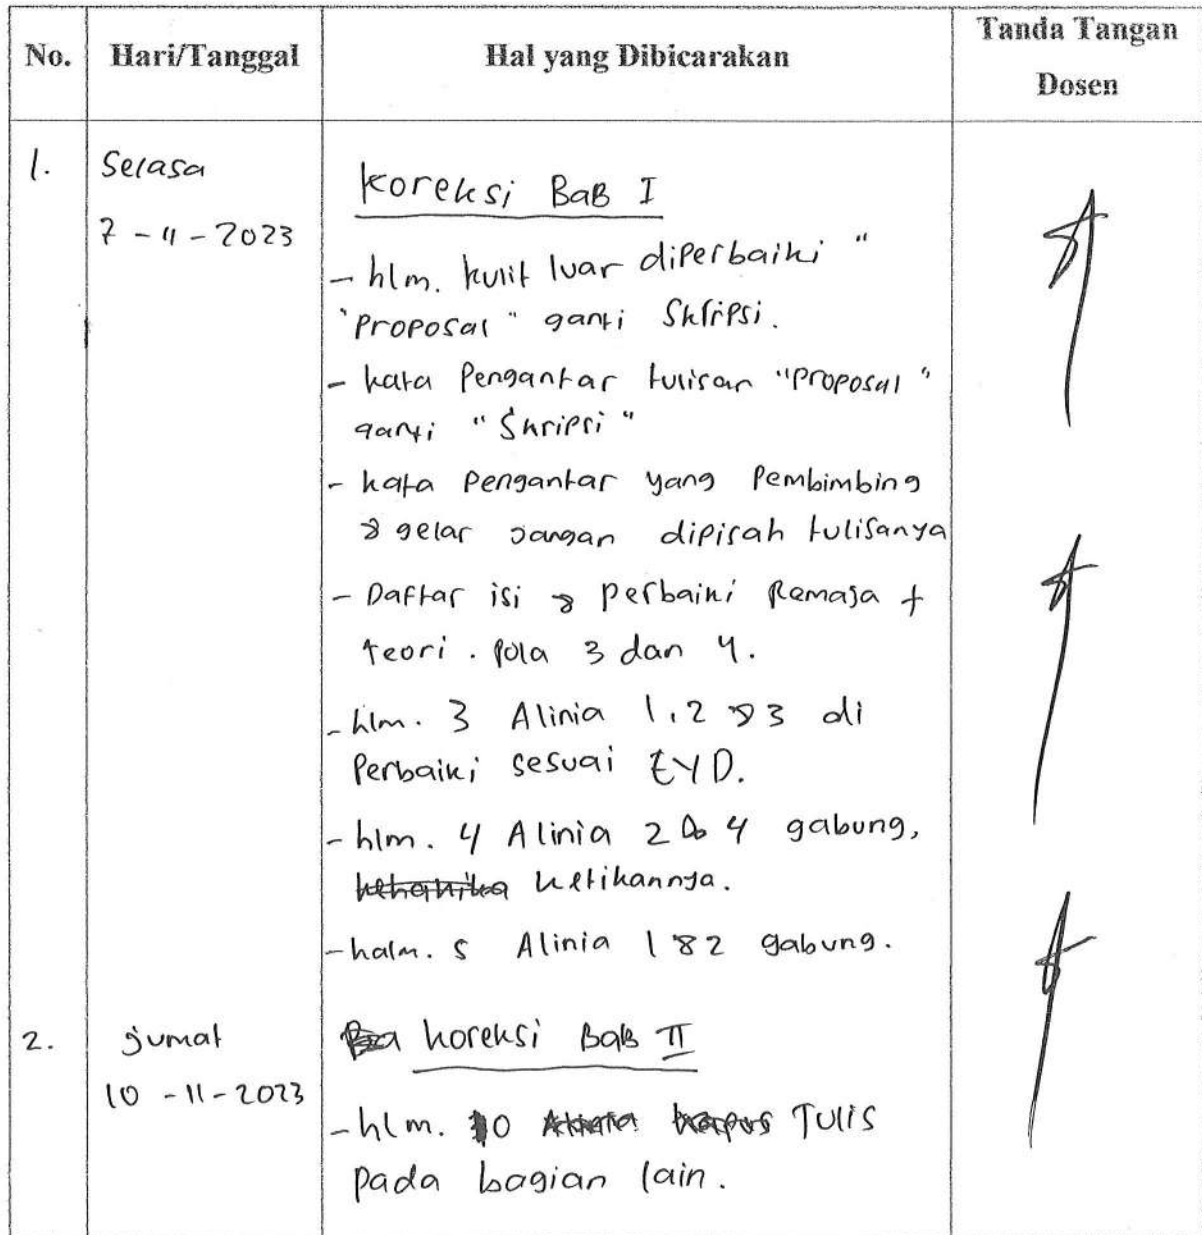 No. Hari/Tanggal Hal yang Dibicarakan Tanda Tangan
Dosen
1. Selasa Koreksi BaB I
7 - 11 - 2023
- hlm. kulit luar diperbaiki "
"Proposal" ganti Skripsi.
- kata Pengantar tulisan "Proposal"
ganti "Skripsi"
- kata Pengantar yang Pembimbing
& gelar Jangan dipisah tulisanya
- Daftar isi & perbaiki Remaja +
teori. Pola 3 dan 4.
- hlm. 3 Alinia 1,2 & 3 di
Perbaiki sesuai EYD.
- hlm. 4 Alinia 2 & 4 gabung,
ketikannya.
- halm. 5 Alinia 1 & 2 gabung.
2. Jumat koreksi BaB II
10 - 11 - 2023
- hlm. 10 Tulis
pada bagian lain.